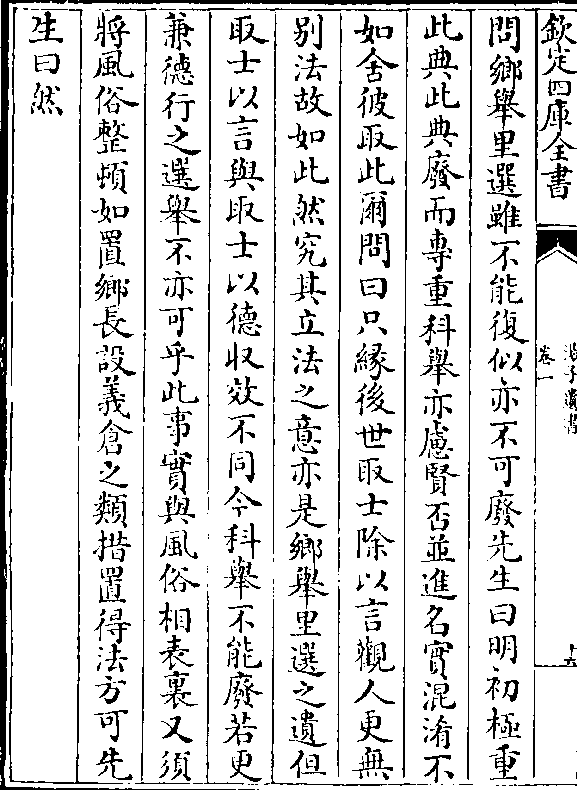 欽定四庫全書
卷一
問鄉舉里選雖不能復似亦不可廢先生曰明初極重
此典此典廢而專重科舉亦慮賢否並進名實混淆不
如舍彼取此爾問曰只緣後世取士除以言觀人更無
别法故如此然究其立法之意亦是鄉舉里選之遺但
取士以言與取士以德收效不同今科舉不能廢若更
兼德行之選舉不亦可乎此事實與風俗相表裏又須
將風俗整頓如置鄉長設義倉之類措置得法方可先
生曰然